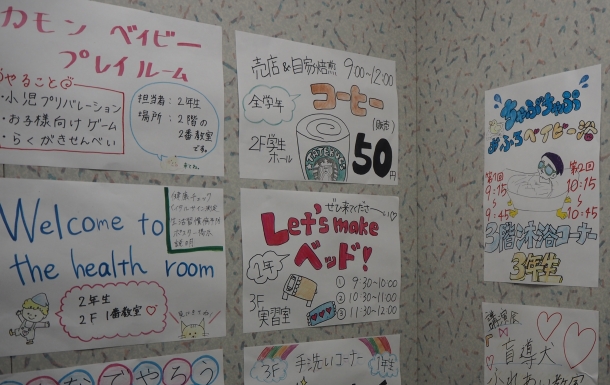 カモン ベイビー
プレイルーム
やること
・小児プリパレーション
・お子様向けゲーム
・らくがきせんべい
担当者：2年生
場所：2階の
2番教室
です。
売店&自家焙煎 9:00~12:00
全学年
コーヒー
(販売)
2F学生
ホール
50円
ちゃぷちゃぷ
おふろベイビー浴
第1回
9:15
~
9:45
第2回
10:15
~
10:45
3階沐浴コーナー
3年生
Welcome to
the health room
健康チェック
バイタルサイン測定
生活習慣病予防
ポスター掲示
説明
2年生
2F 1番教室♡
ぜひ来てくださーい♡
Let's make
ベッド!
1年
3F
実習室
① 9:30-10:00
② 10:30-11:00
③ 11:30-12:00
3F 手洗いコーナー 1年生
なでやろう
盲導犬